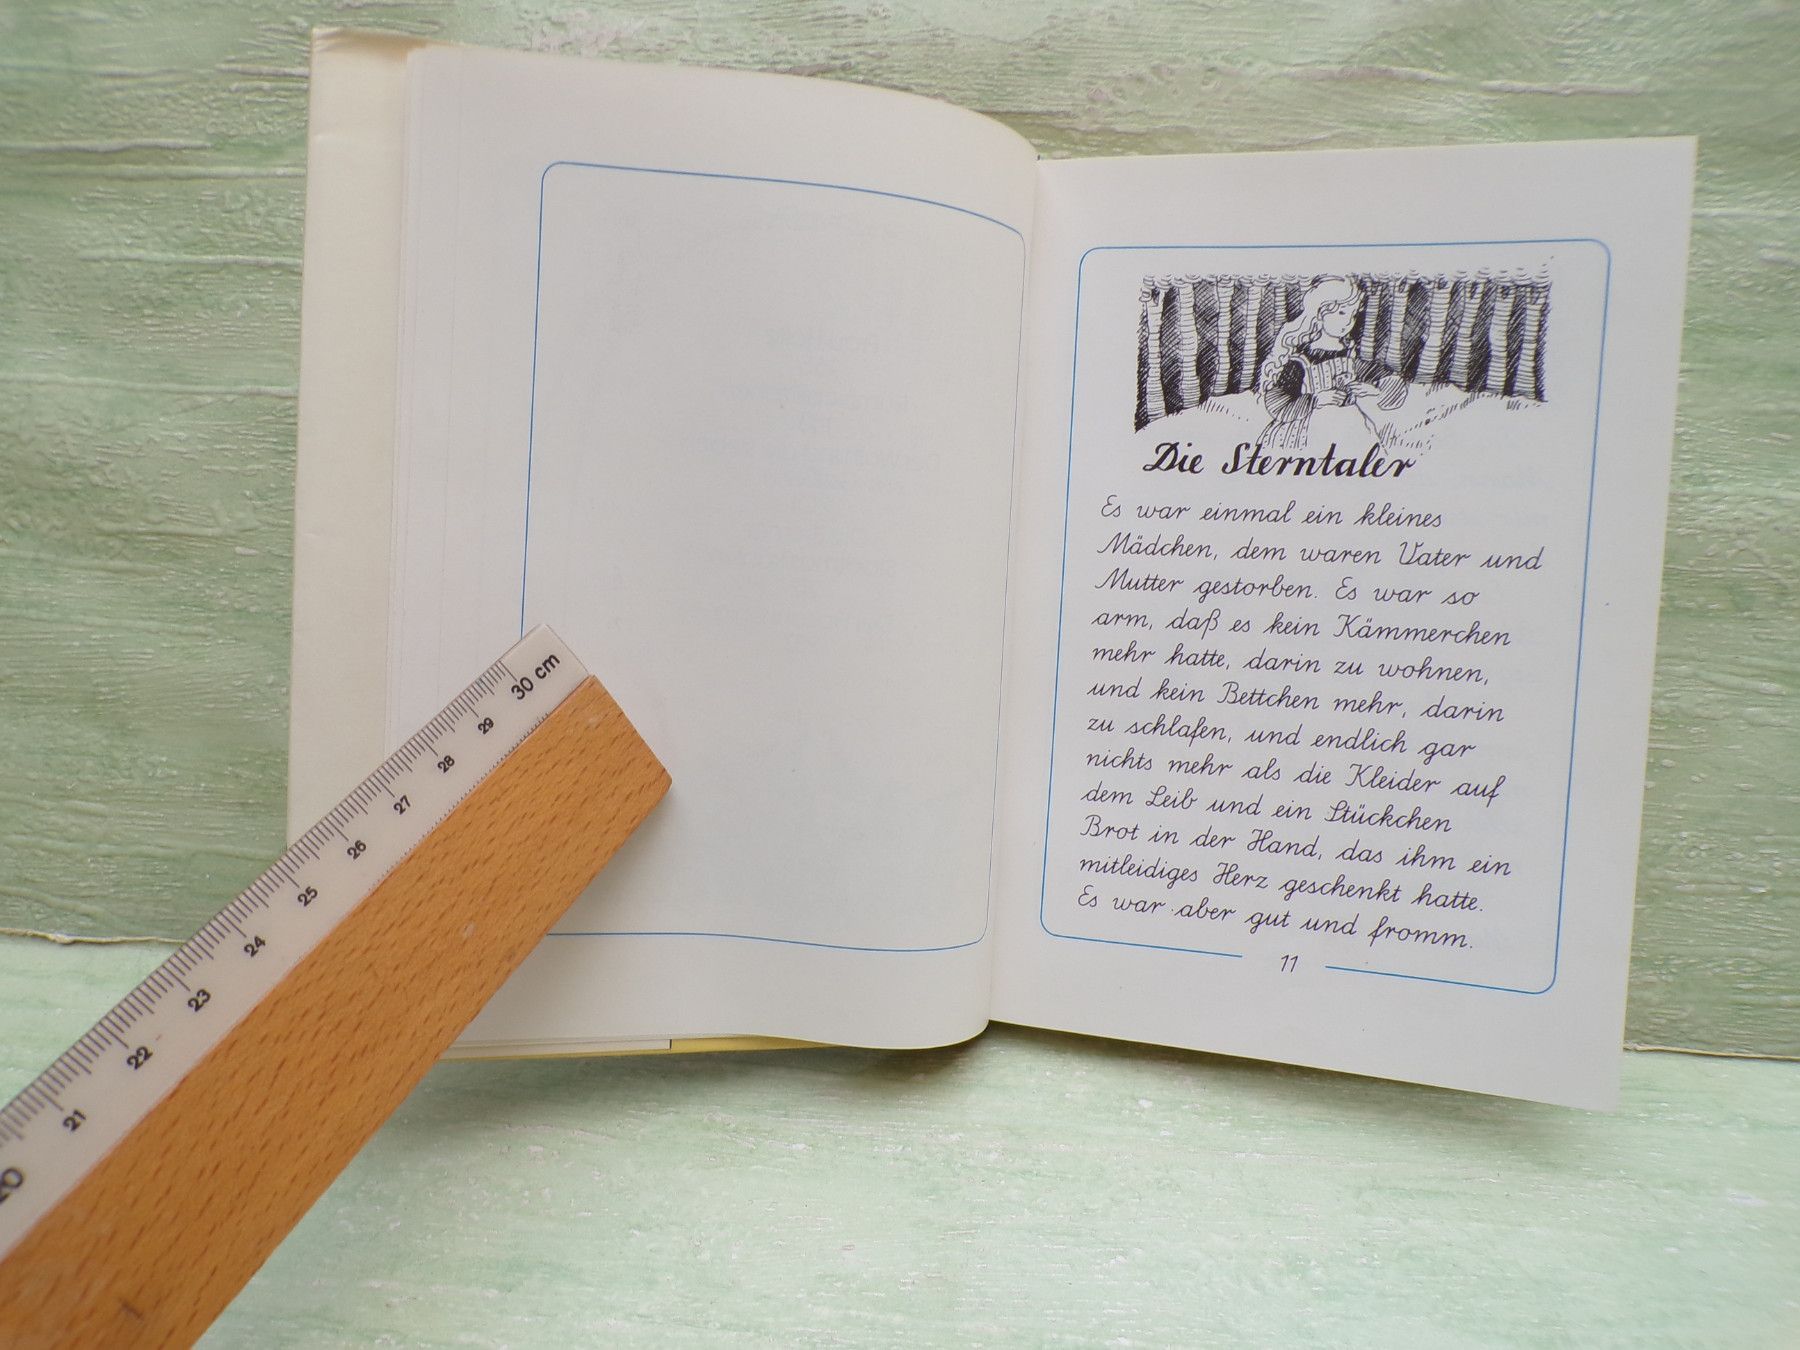 Die Sterntaler
Es war einmal ein kleines
Mädchen, dem waren Vater und
Mutter gestorben. Es war so
arm, daß es kein Kämmerchen
mehr hatte, darin zu wohnen,
und kein Bettchen mehr, darin
zu schlafen, und endlich gar
nichts mehr als die Kleider auf
dem Leib und ein Stückchen
Brot in der Hand, das ihm ein
mitleidiges Herz geschenkt hatte.
Es war aber gut und fromm.
11
20 21 22 23 24 25 26 27 28 29 30 cm